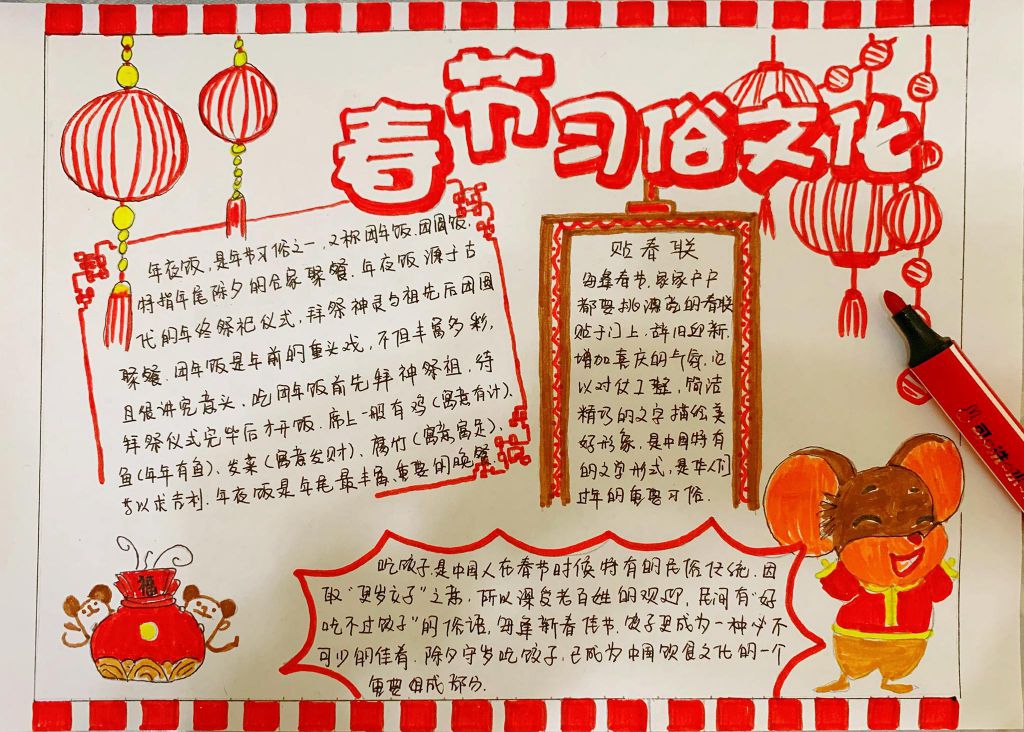 春节习俗文化
年夜饭,是年节习俗之一,又称团年饭、团圆饭,
特指年尾除夕的合家聚餐.年夜饭源于古
代的年终祭祀仪式,拜祭神灵与祖先后团圆
聚餐.团年饭是年前的重头戏,不但丰富多彩,
且很讲究意头.吃团年饭前先拜神祭祖,待
拜祭仪式完毕后才开饭.席上一般有鸡(寓意有计)、
鱼(年年有鱼)、发菜(寓意发财)、腐竹(寓意富足)、
等以求吉利.年夜饭是年尾最丰富、重要的晚餐
贴春联
每逢春节,家家户户
都要挑漂亮的春联
贴于门上,辞旧迎新,
增加喜庆的气氛,它
以对仗工整,简洁
精巧的文字描绘美
好形象,是中国特有
的文学形式,是华人们
过年的重要习俗.
吃饺子是中国人在春节时候特有的民俗传统.因
取"更岁交子"之意,所以深受老百姓的欢迎,民间有"好
吃不过饺子"的俗语,每逢新春佳节,饺子更成为一种必不
可少的佳肴.除夕守岁吃饺子,已成为中国饮食文化的一个
重要组成部分.
福